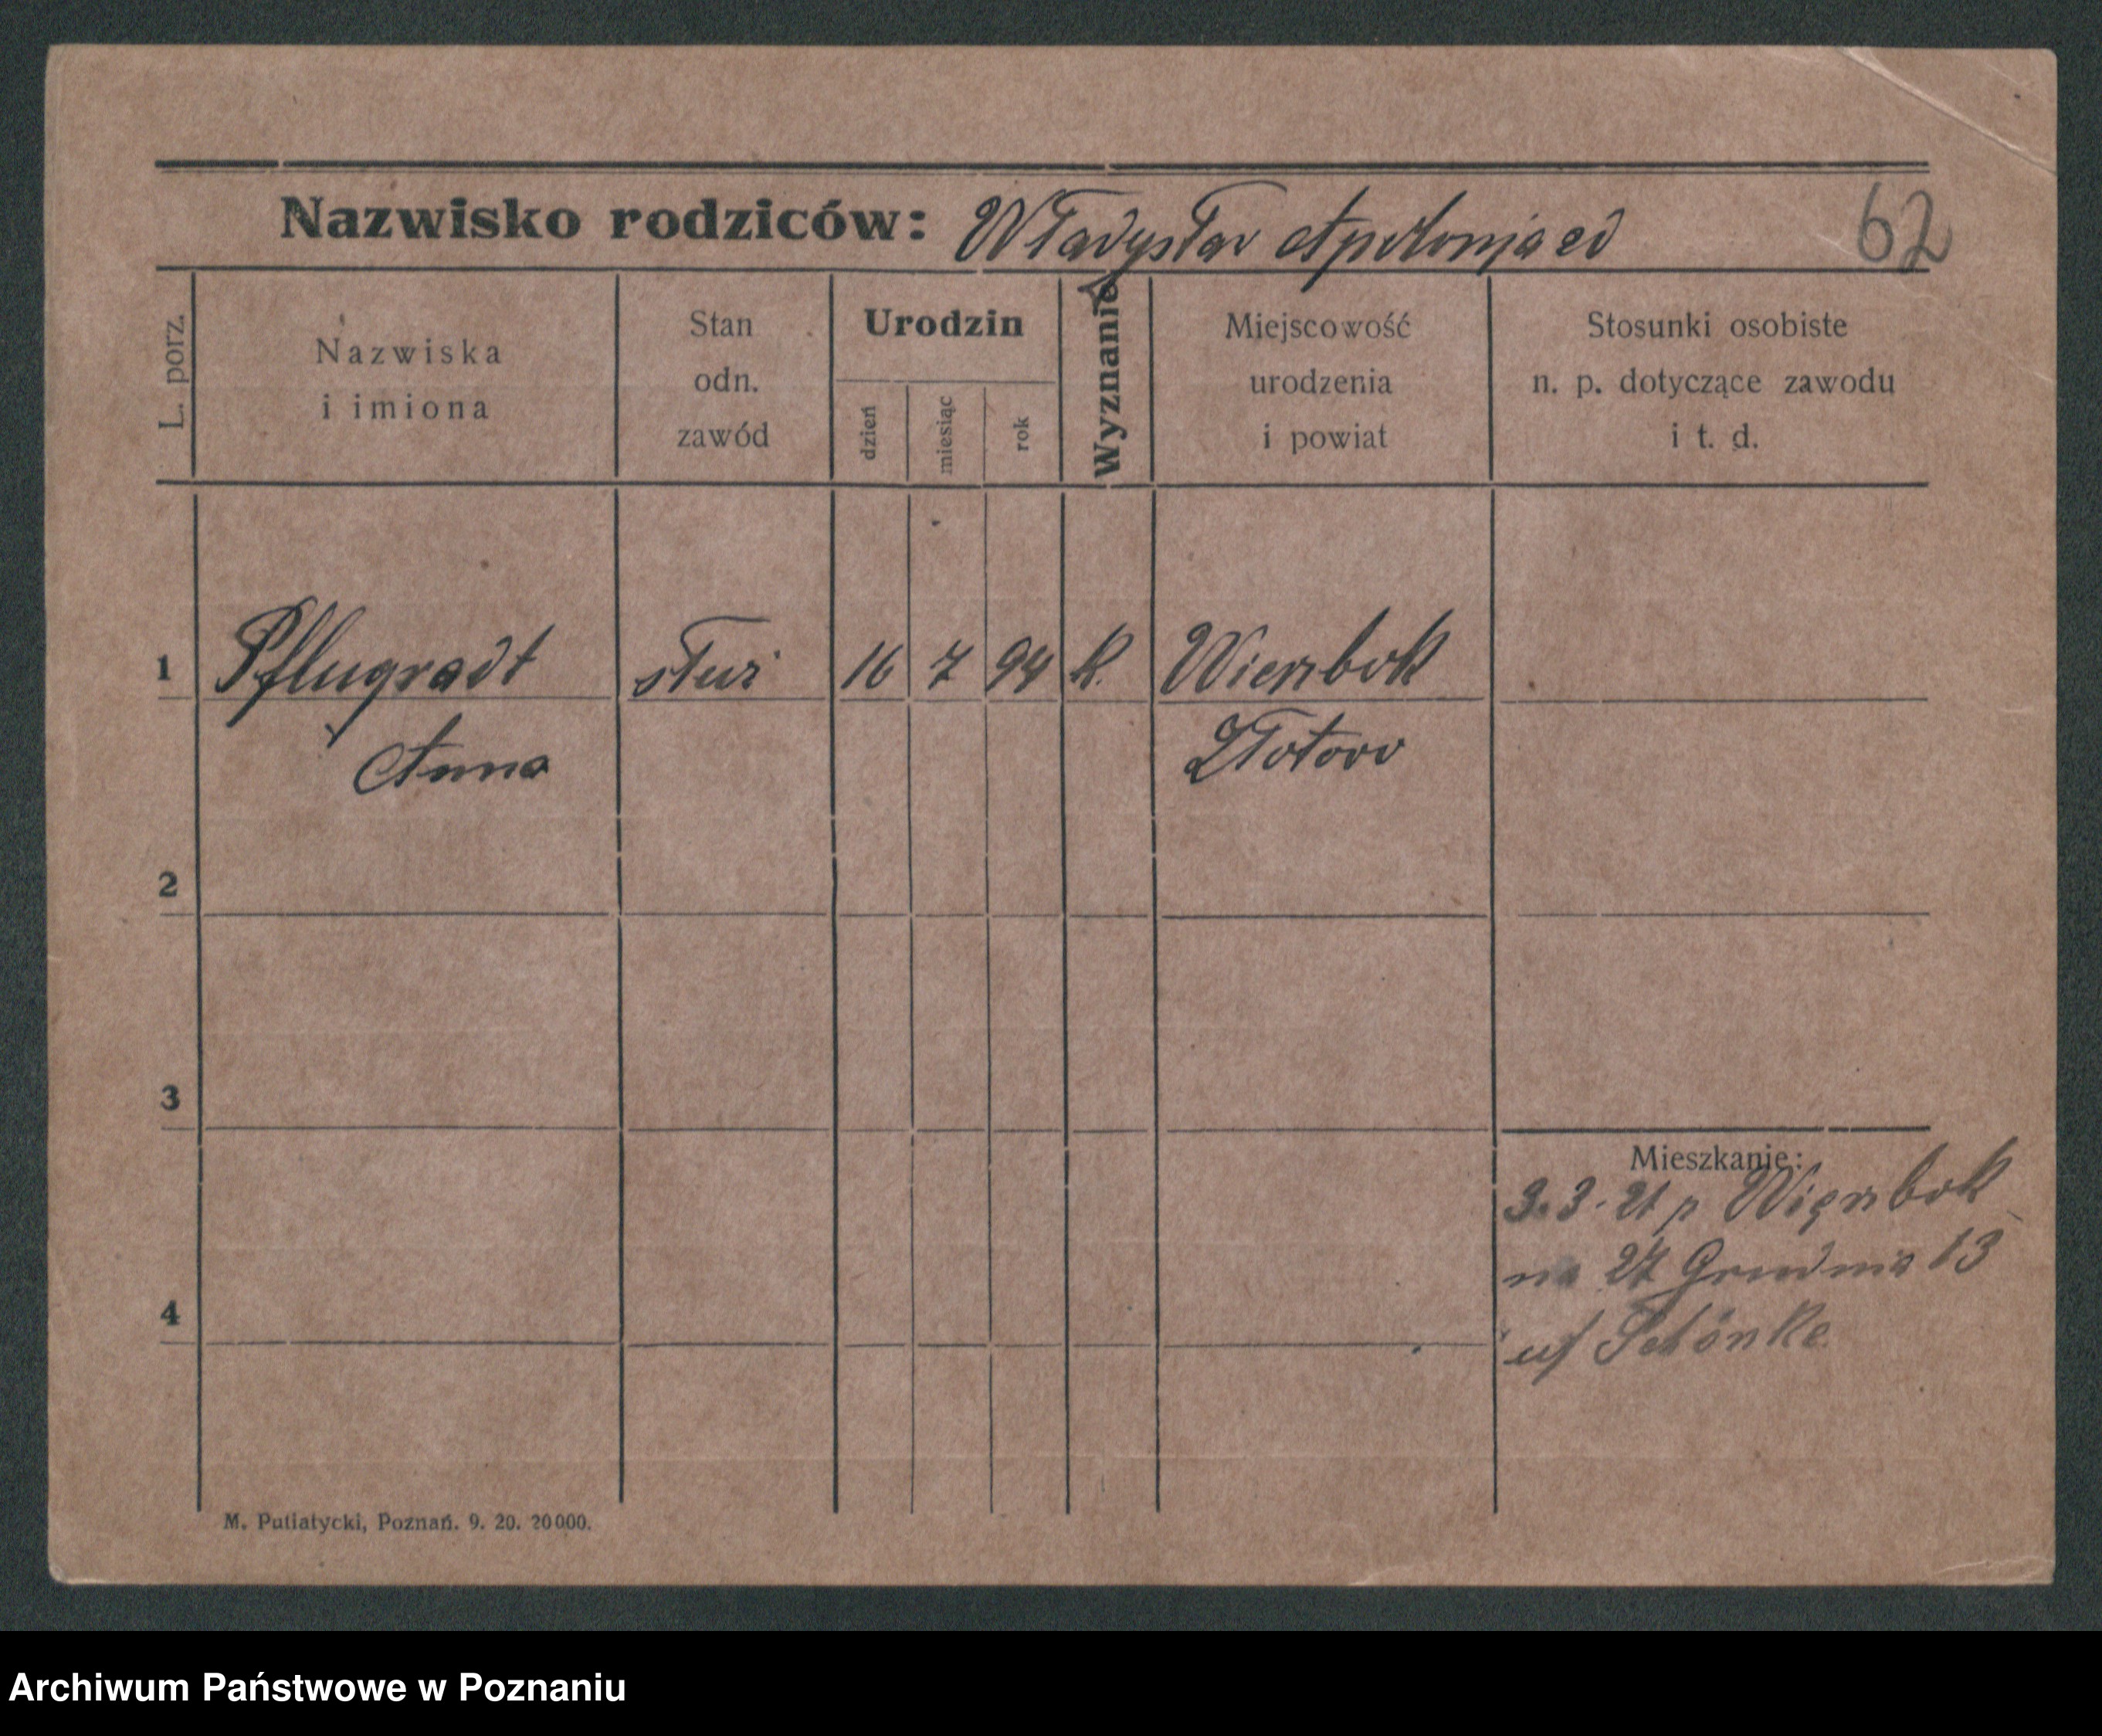 Nazwisko rodziców: Władysław Apolonja ed
62
L. porz.
Nazwiska
i imiona
Stan
odn.
zawód
Urodzin
dzień
miesiąc
rok
Wyznanie
Miejscowość
urodzenia
i powiat
Stosunki osobiste
n. p. dotyczące zawodu
i t. d.
1 Pflugradt służ 16 7 94 k. Wierzbok
Anna Złotowo
2
3
Mieszkanie:
3.3.21 p Wierzbok
na 27 Grudnia 13
4
Schönke
M. Putiatycki, Poznań. 9. 20. 20000.
Archiwum Państwowe w Poznaniu